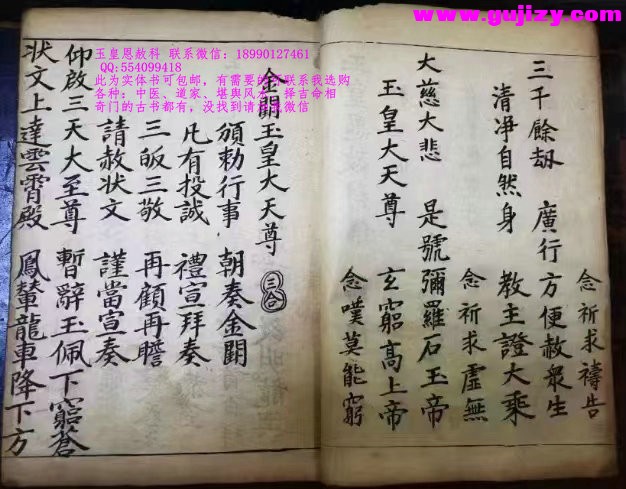 www.gujizy.com
玉皇恩赦科 联系微信：18990127461
QQ:554099418
此为实体书可包邮，有需要的可联系我选购
各种：中医、道家、堪舆风水、择吉命相
奇门的古书都有，没找到请加我微信
念祈求禱告
三千餘劫 廣行方便赦衆生
清凈自然身 教主證大乘
念祈求虛無
大慈大悲 是號彌羅石玉帝
玉皇大天尊 玄窮高上帝
念嘆莫能窮
金闕玉皇大天尊 三合
頒勅行事 朝奏金闕
凡有投誠 禮宣拜奏
三皈三敬 再顧再瞻
請赦狀文 謹當宣奏
仰啟三天大至尊 暫辭玉佩下窮蒼
狀文上達雲霄殿 鳳輦龍車降下方